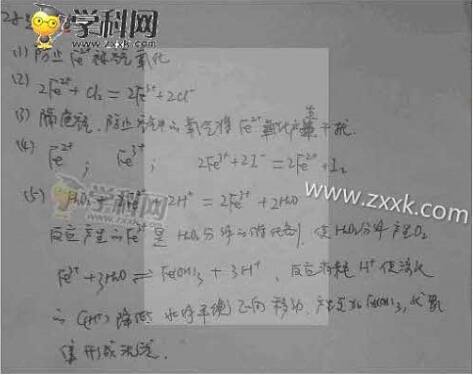 学科网
www.zxxk.com
(1) 防止Fe²⁺被氧化
(2) 2Fe²⁺ + Cl₂ = 2Fe³⁺ + 2Cl⁻
(3) 隔绝空气，防止空气中的氧气将Fe²⁺氧化产生干扰.
(4) Fe²⁺; Fe³⁺; 2Fe³⁺ + 2I⁻ = 2Fe²⁺ + I₂
(5) H₂O₂ + 2H⁺ = 2Fe³⁺ + 2H₂O
www.zxxk.com
反应产生的Fe³⁺是H₂O₂分解的催化剂，使H₂O₂分解产生O₂
Fe³⁺ + 3H₂O ⇌ Fe(OH)₃ + 3H⁺, 反应消耗H⁺使溶液
中c(H⁺)降低 水解平衡正向移动，产生的Fe(OH)₃
学科网